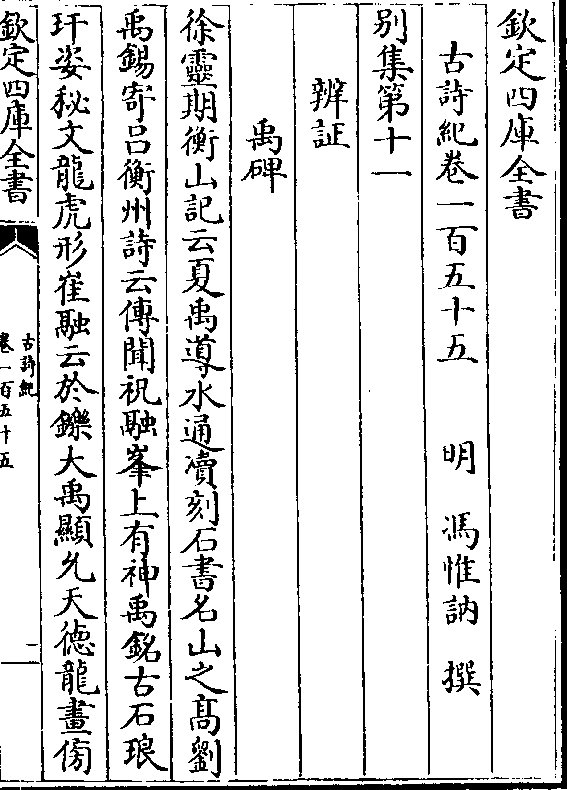 欽定四庫全書
古詩紀卷一百五十五　明　馮惟訥　撰
别集第十一
辨証
禹碑
徐靈期衡山記云夏禹導水通瀆刻石書名山之髙劉
禹錫寄吕衡州詩云傳聞祝融峯上有神禹銘古石琅
玕姿秘文龍虎形崔融云於鑠大禹顯允天徳龍畫傍
欽定四庫全書
古詩紀
卷一百五十五
一